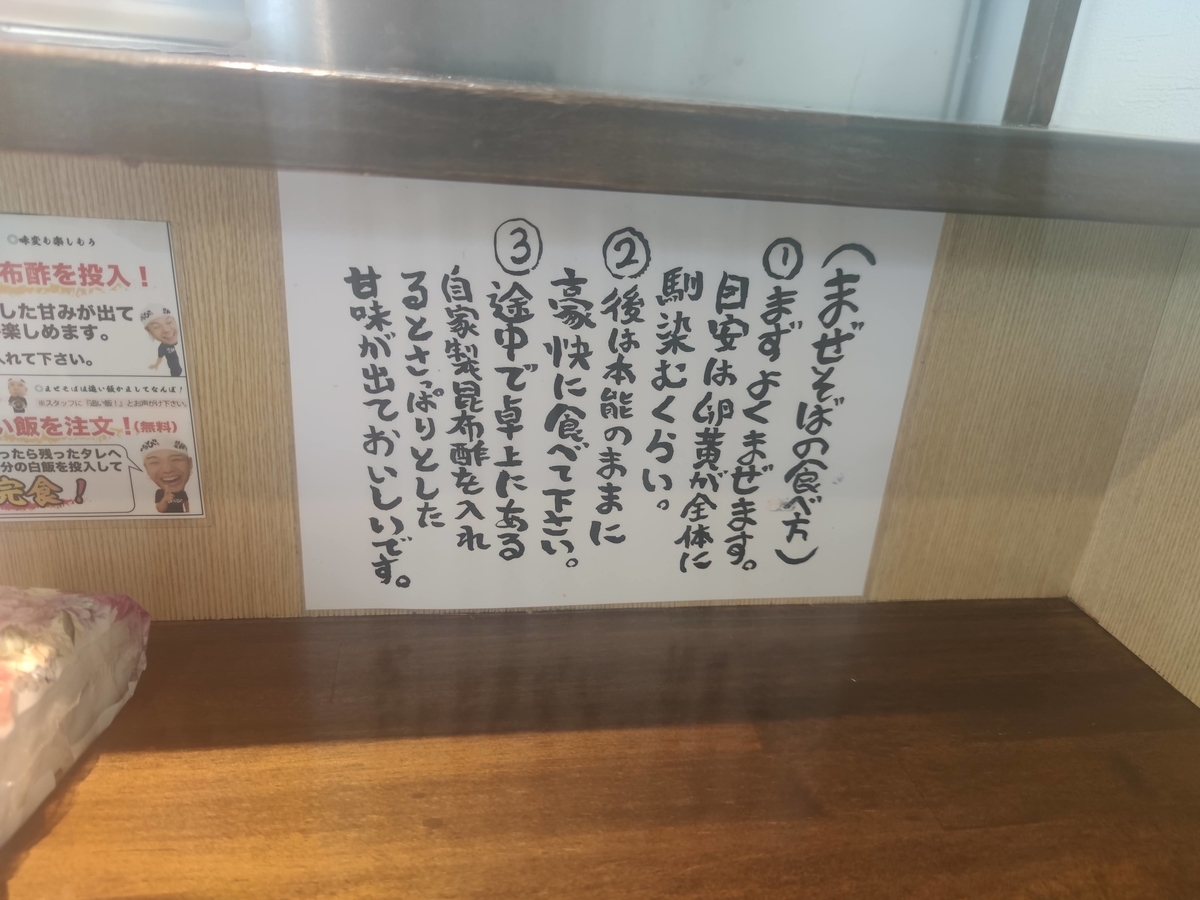 （まぜそばの食べ方）
①まず よくまぜます。
目安は卵黄が全体に
馴染むくらい。
②後は本能のままに
豪快に食べて下さい。
③途中で卓上にある
自家製昆布酢を入れ
るとさっぱりとした
甘味が出ておいしいです。
◎味変も楽しもう
布酢を投入！
した甘みが出て
楽しめます。
入れて下さい。
◎まぜそばは追い飯かましてなんぼ！
※スタッフに『追い飯！』とお声がけ下さい。
い飯を注文！(無料)
ったら残ったタレへ
分の白飯を投入して
完食！